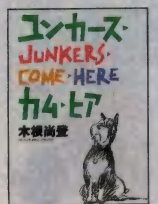 ユンカース・
JUNKERS・
COME・HERE
カム・ヒア
木根尚登